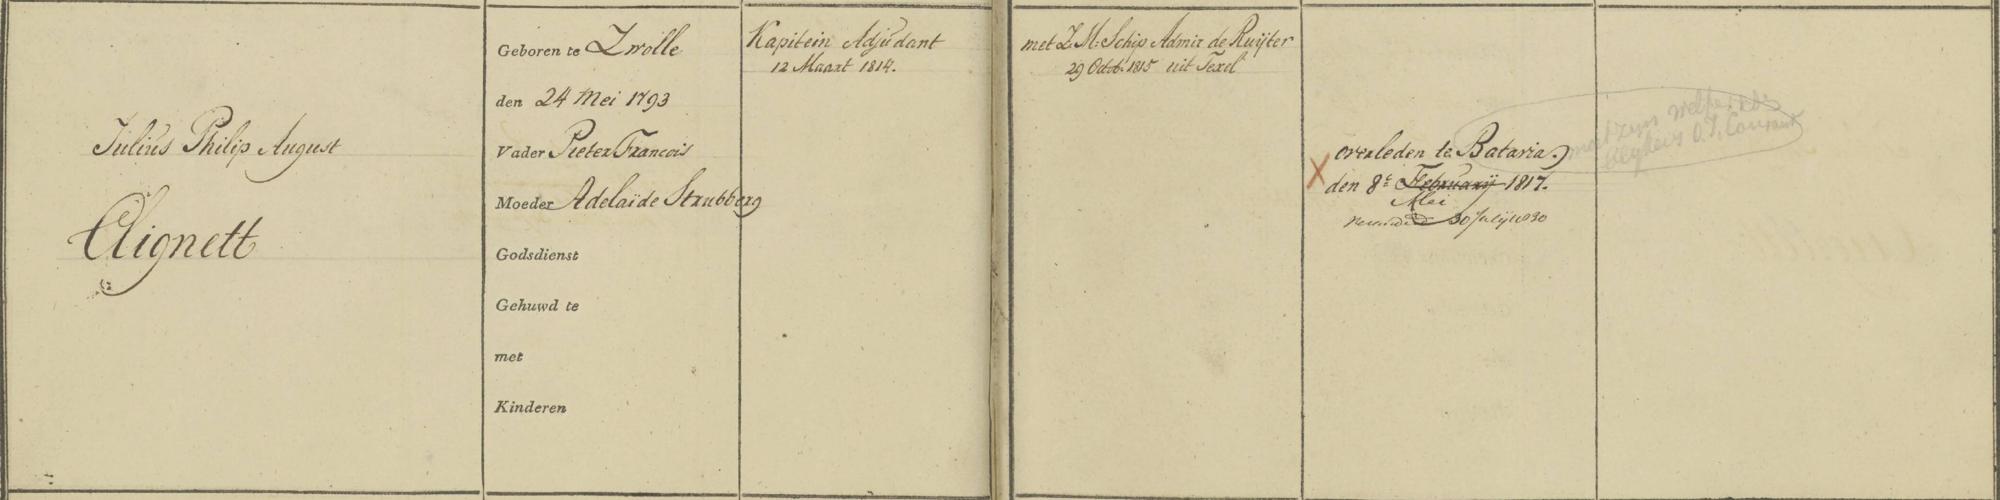 Julius Philip August
Clignett
Geboren te Zwolle
den 24 Mei 1793
Vader Pieter Francois
Moeder Adelaïde Strubberg
Godsdienst
Gehuwd te
met
Kinderen
Kapitein Adjudant
12 Maart 1814.
met Z. M. Schip Admir de Ruijter
29 Octob. 1815 uit Texel
X overleden te Batavia
den 8e Februarij 1817.
Mei
30 Julij 1830
O. I. Courant